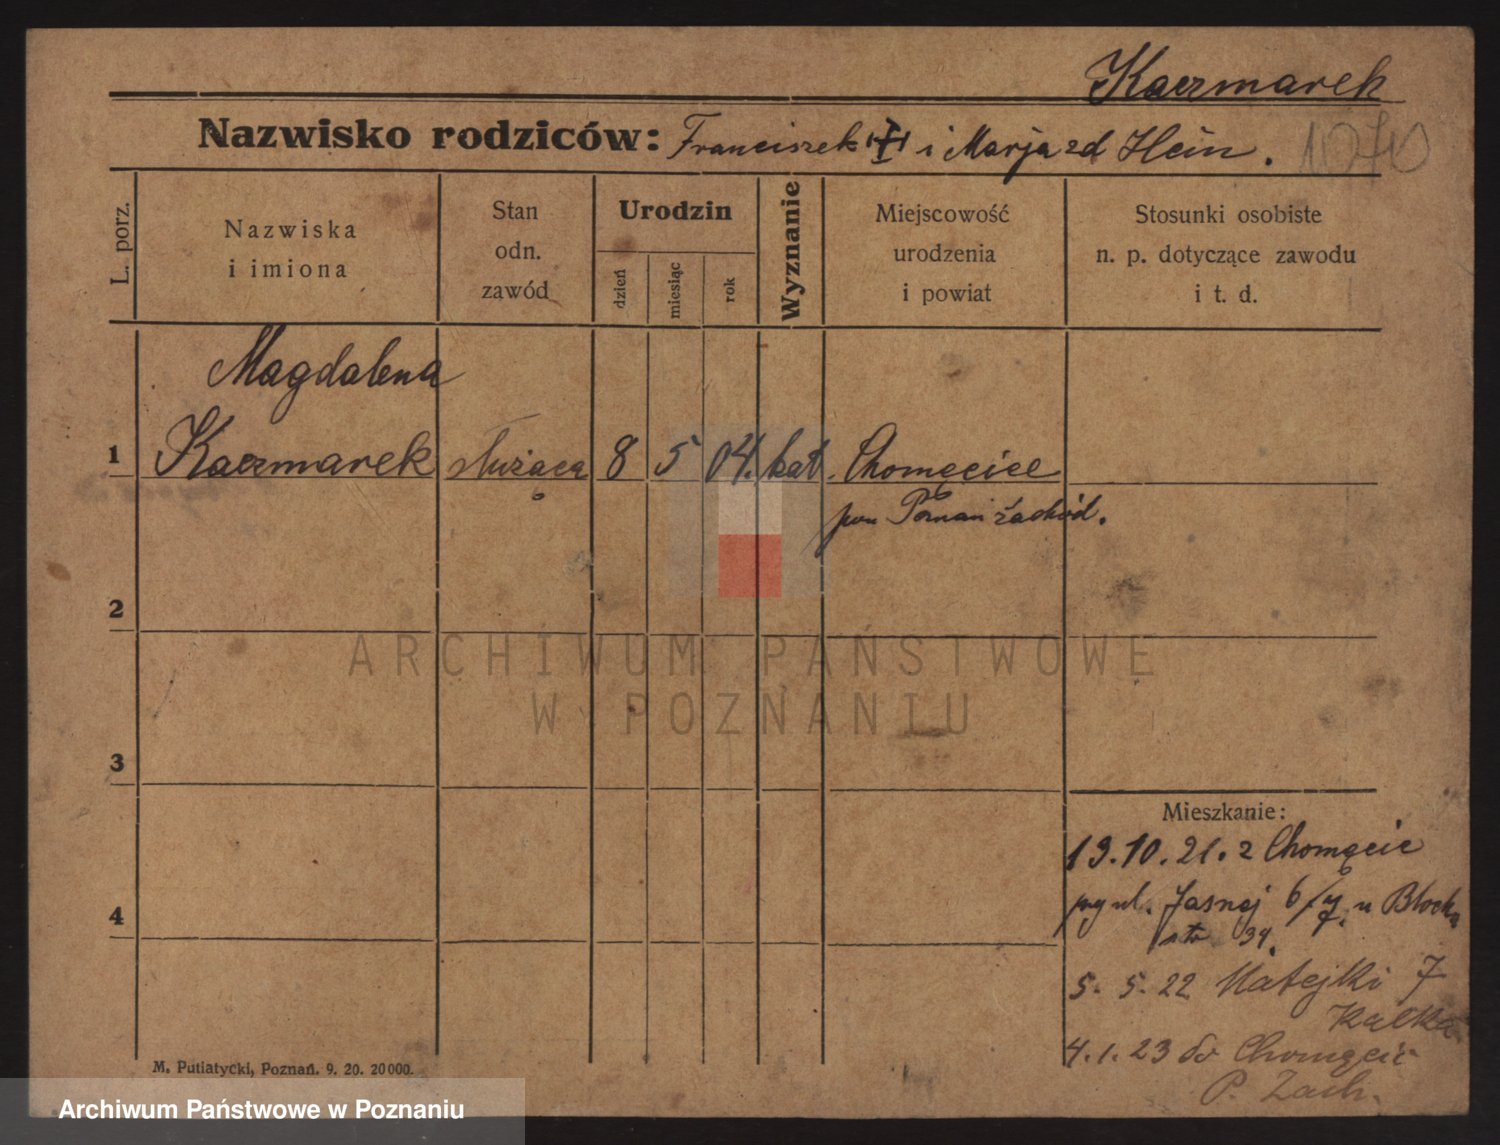 Kaczmarek
Nazwisko rodziców: Franciszek i Marja zd Hein.
L. porz.
Nazwiska
i imiona
Stan
odn.
zawód
Urodzin
dzień
miesiąc
rok
Wyznanie
Miejscowość
urodzenia
i powiat
Stosunki osobiste
n. p. dotyczące zawodu
i t. d.
Magdalena
1 Kaczmarek służąca 8 5 04. kat. Chomęcice
pow Poznań zachód.
2
ARCHIWUM PAŃSTWOWE
W POZNANIU
3
Mieszkanie:
19.10.21. z Chomęcic
4
ul. Jasnej 6/7. u Block
34.
5. 5. 22 Matejki 7
Kalka
4.1.23 do Chomęcic
P. Zach.
M. Putiatycki, Poznań. 9. 20. 20000.
Archiwum Państwowe w Poznaniu